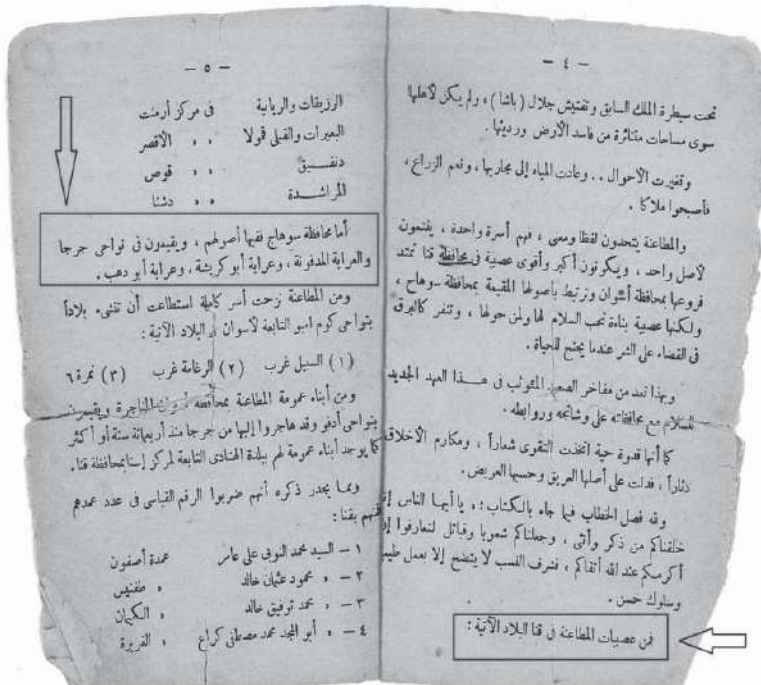 — ٤ —
تحت سيطرة الملك السابق وتفتيش جلال ( باشا ) ، ولم يكن لأهلها
سوى مساحات متناثرة من فاسد الأرض ورديئها .
وتغيرت الأحوال .. وعادت المياه إلى مجاريها ، ونعم الزراع ،
فأصبحوا ملاكا .
والمطاعنة يتحدون لفظا ومعنى ، فهم أسرة واحدة ، ينتمون
لأصل واحد ، ويكونون أكبر وأقوى عصبية فى محافظة قنا تمتد
فروعها بمحافظة أسوان وترتبط بأصولها المقيمة بمحافظة سوهاج ،
ولكنها عصبية بناءة تحب السلام لها ولمن حولها ، وتنفر كالبرق
فى القضاء على الشر عندما يجنح للحياة .
وبهذا تعد من مفاخر الصعيد المتوثب فى هـذا العهد الجديد
للسلام مع محافظاته على وشائجه وروابطه .
كما أنها قدوة حية اتخذت التقوى شعاراً ، ومكارم الأخلاق
دثاراً ، فدلت على أصلها العريق وحسبها العريض .
وقد فصل الخطاب فيما جاء بالكتاب : « يا أيها الناس إنا
خلقناكم من ذكر وأنثى ، وجعلناكم شعوبا وقبائل لتعارفوا إن
أكرمكم عند الله أتقاكم ، فشرف النسب لا يتضح إلا بعمل طيب
وسلوك حسن .
فمن عصبيات المطاعنة فى قنا البلاد الآتية :
— ٥ —
الرزيقات والريانية فى مركز أرمنت
البعيرات والقبلى قمولا » » الأقصر
دنفـيق » » قوص
المراشـدة » » دشنا
أما محافظة سوهاج ففيها أصولهم ، ويقيمون فى نواحى جرجا
والعرابة المدفونة ، وعرابة أبو كريشة ، وعرابة أبو دهب .
ومن المطاعنة نزحت أسر كاملة استطاعت أن تنشىء بلاداً
بنواحى كوم امبو التابعة لأسوان البلاد الآتية :
(١) السيل غرب (٢) الرغامة غرب (٣) نمرة ٦
ومن أبناء عمومة المطاعنة بمحافظة ويقيمون
بنواحى أدفو وقد هاجروا إليها من جرجا منذ أربعمائة سنة أو أكثر
كما يوجد أبناء عمومة لهم ببلدة الهنادى التابعة لمركز إسنا بمحافظة قنا .
ومـا يجدر ذكره أنهم ضربوا الرقم القياسى فى عدد عمدهم
بقنا :
١ — السيد محمد النوبى على عامر عمدة أصفون
٢ — » محمود عثمان خالد » طفنيس
٣ — » محمد توفيق خالد » الكيمان
٤ — » أبو المجد محمد مصطفى كراع » الغريرة